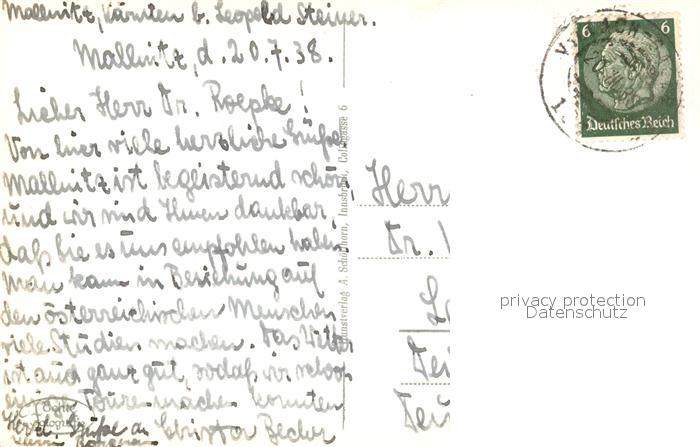 Mallnitz, Kärnten b. Leopold Steiner.
Mallnitz, d. 20.7.38.
Lieber Herr Dr. Roepke!
Von hier viele herzliche Grüße
Mallnitz ist begeisternd schön,
und wir sind Ihnen dankbar,
daß Sie es uns empfohlen haben.
Man kann in Beziehung auf
den österreichischen Menschen
viele Studien machen. Das Wetter
ist auch ganz gut, sodaß wir schon
Touren machen konnten
Herzl. Grüße an Christa Becker
Herrn
Echte
Kunstverlag A. Schöpfhorn, Innsbruck, Collgasse 6
6 6
Deutsches Reich
Herr
Dr.
privacy protection
Datenschutz